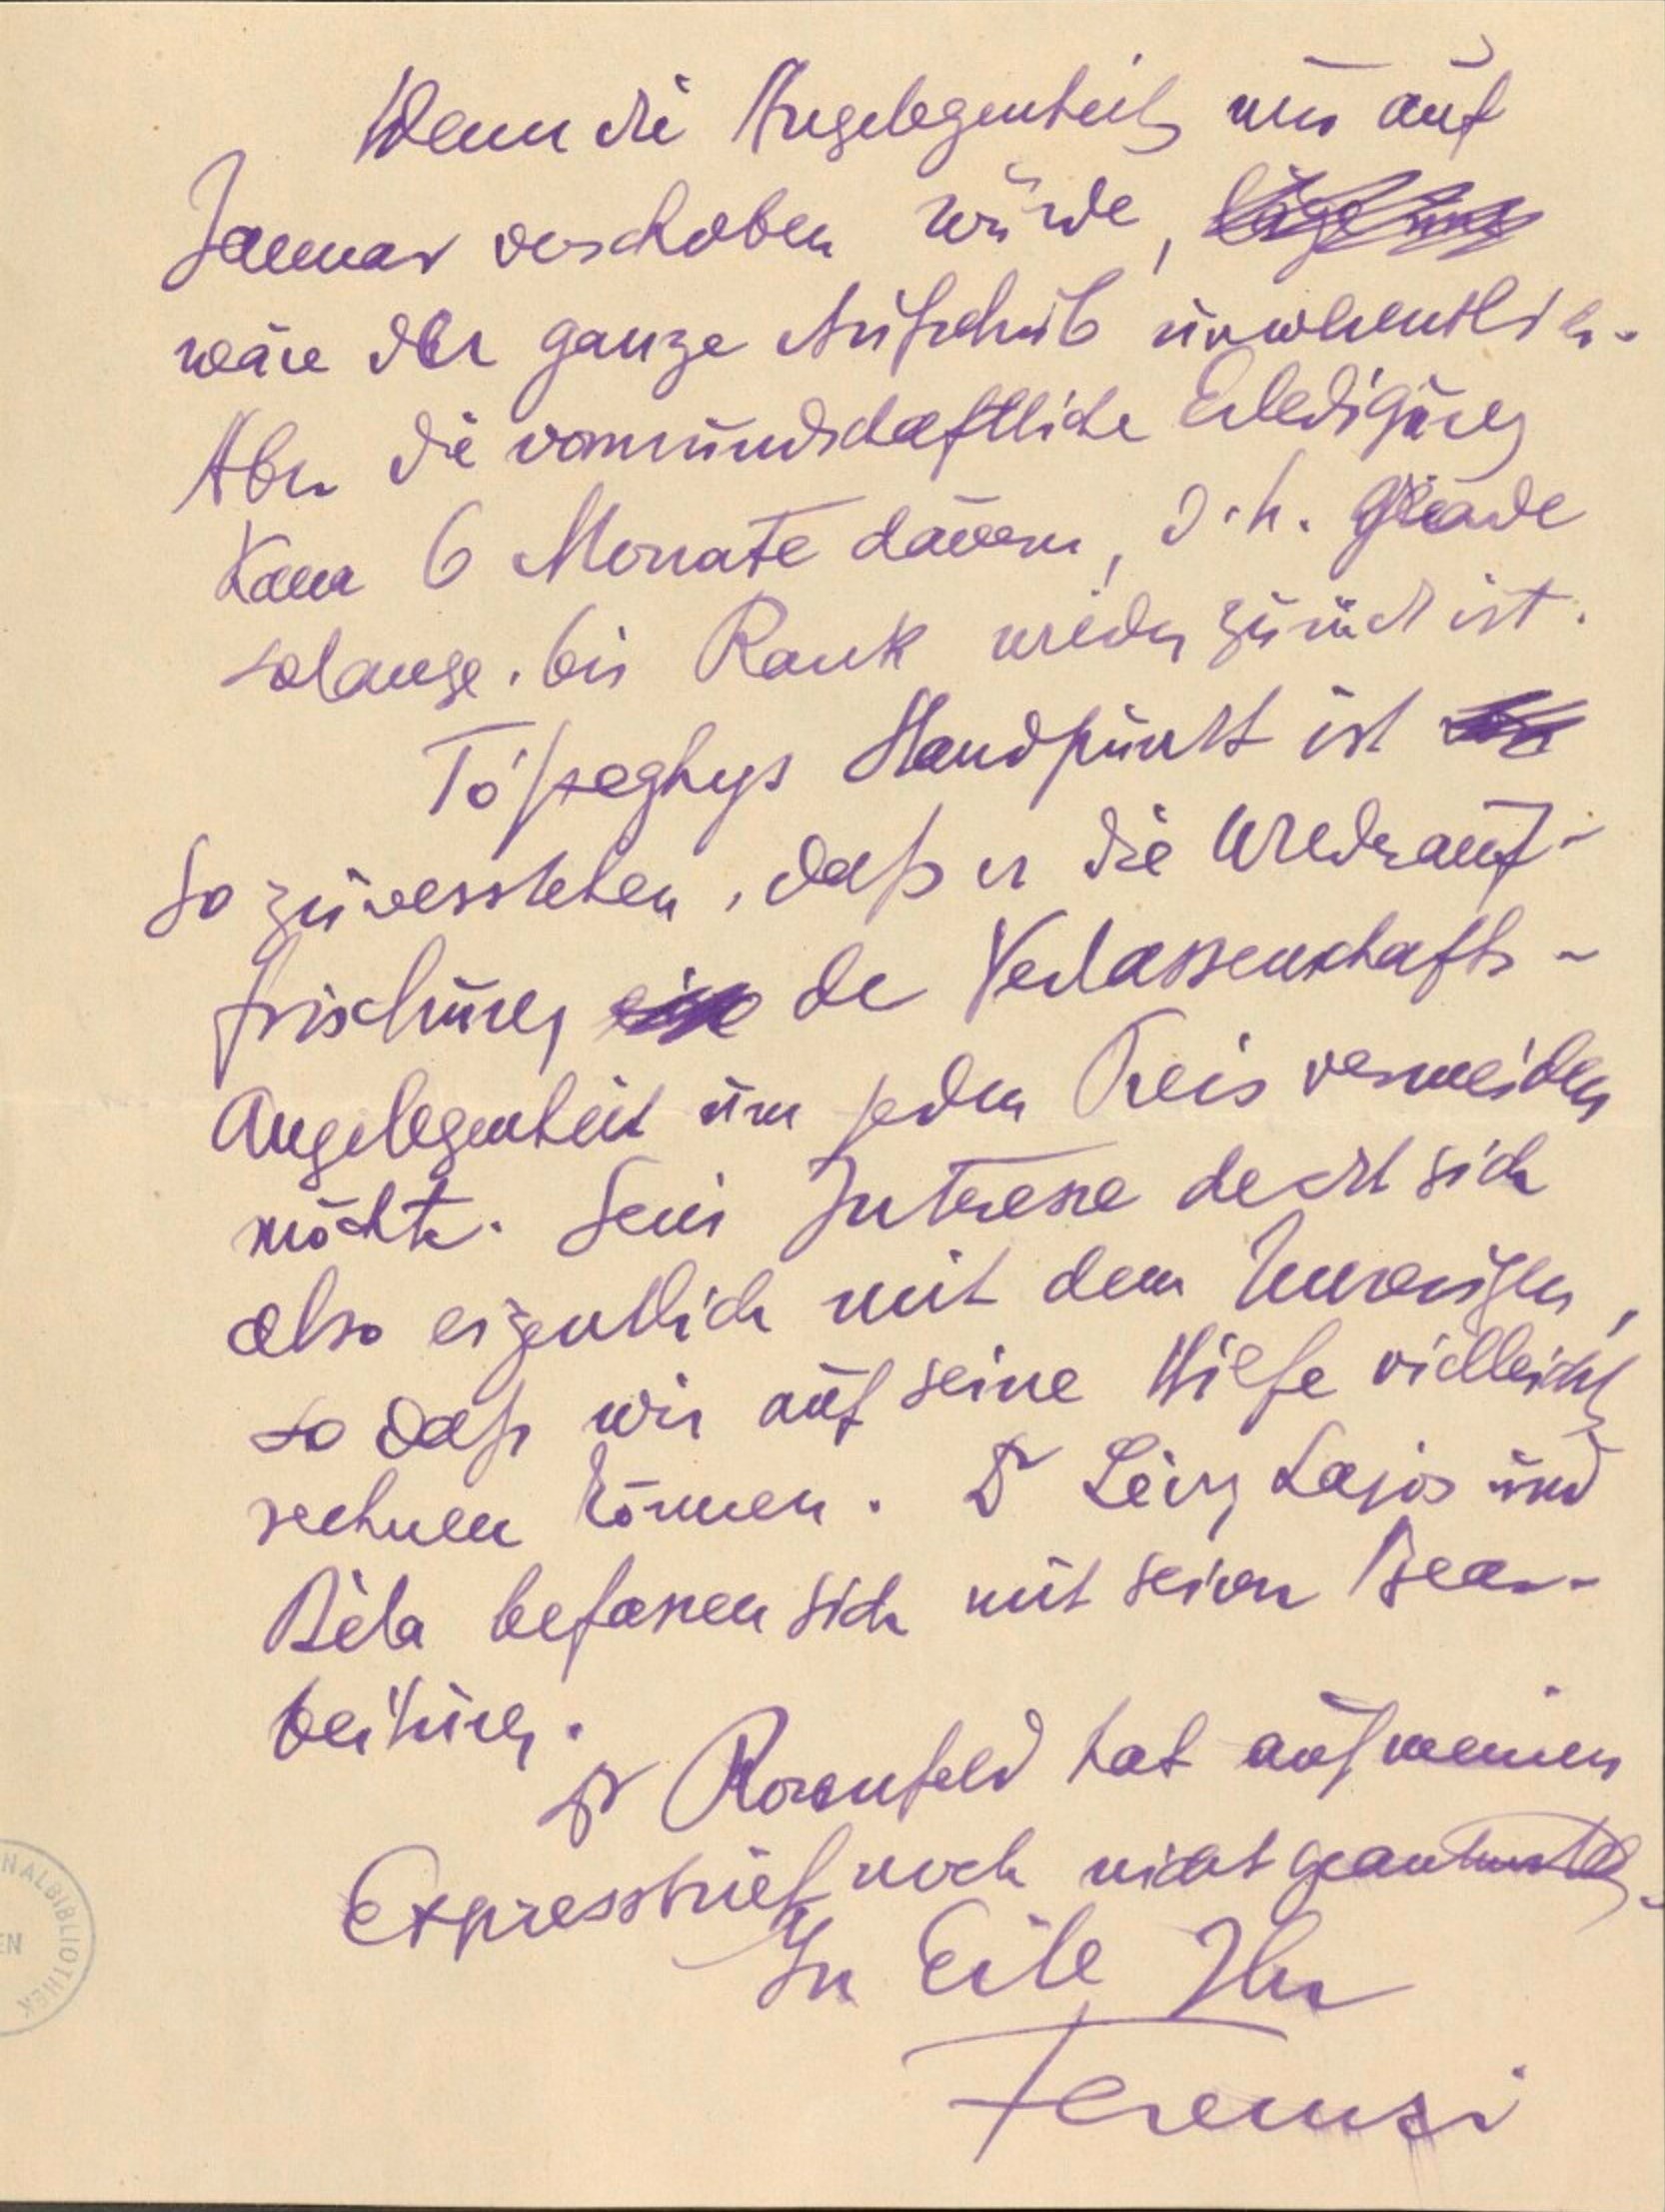 Wenn die Angelegenheit nur auf
Januar verschoben würde,
wäre der ganze Aufschub unwesentlich.
Aber die vormundschaftliche Erledigung
kann 6 Monate dauern, d.h. gerade
solange, bis Rank wieder zurück ist.
Tószeghys Standpunkt ist
so zu verstehen, daß er die Wiederauf-
frischung der Verlassenschafts-
Angelegenheit um jeden Preis vermeiden
möchte. Sein Interesse deckt sich
also eigentlich mit dem Unsrigen,
so daß wir auf seine Hilfe vielleicht
rechnen können. Dr Lévy Lajos und
Béla befassen sich mit seiner Bear-
beitung.
Dr Rosenfeld hat auf meinen
Expressbrief noch nicht geantwortet.
In Eile Ihr
Ferenczi
NALBIBLIOTHEK
EN